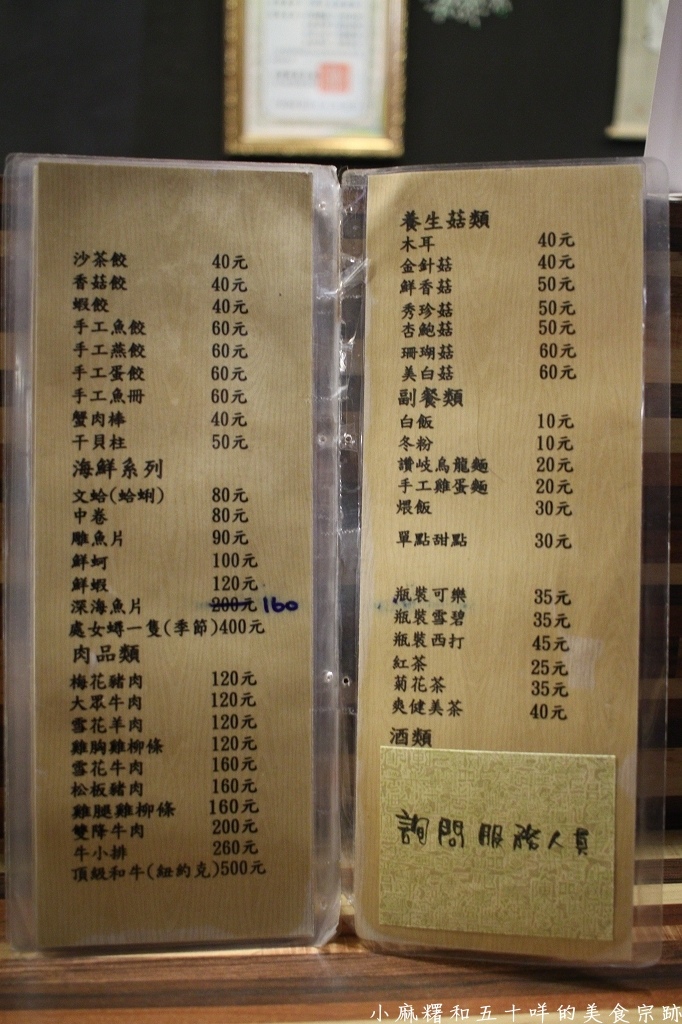 沙茶餃 40元
香菇餃 40元
蝦餃 40元
手工魚餃 60元
手工燕餃 60元
手工蛋餃 60元
手工魚冊 60元
蟹肉棒 40元
干貝柱 50元
海鮮系列
文蛤(蛤蜊) 80元
中卷 80元
鵰魚片 90元
鮮蚵 100元
鮮蝦 120元
深海魚片 200元 160
處女蟳一隻(季節)400元
肉品類
梅花豬肉 120元
大眾牛肉 120元
雪花羊肉 120元
雞胸雞柳條 120元
雪花牛肉 160元
松板豬肉 160元
雞腿雞柳條 160元
雙降牛肉 200元
牛小排 260元
頂級和牛(紐約克)500元
養生菇類
木耳 40元
金針菇 40元
鮮香菇 50元
秀珍菇 50元
杏鮑菇 50元
珊瑚菇 60元
美白菇 60元
副餐類
白飯 10元
冬粉 10元
讚岐烏龍麵 20元
手工雞蛋麵 20元
煨飯 30元
單點甜點 30元
瓶裝可樂 35元
瓶裝雪碧 35元
瓶裝西打 45元
紅茶 25元
菊花茶 35元
爽健美茶 40元
酒類
詢問服務人員
小麻糬和五十咩的美食宗跡